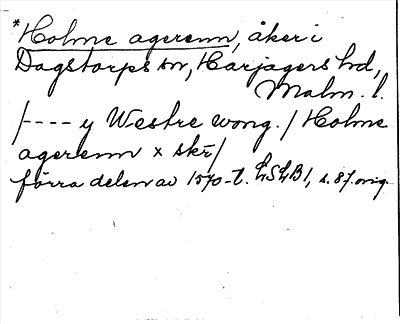 *Holme agerenn, åker i
Dagstorps sn, Harjagers hd,
Malm. l.
/---- y Westre wong. / Holme
agerenn x skr/
förra delen av 1570-t. LSLB1, s. 87. orig.